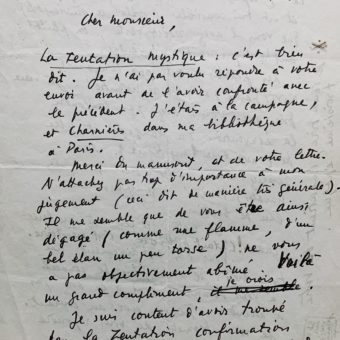 Cher Monsieur,
La Tentation mystique : c'est bien
dit. Je n'ai pas voulu répondre à votre
envoi avant de l'avoir confronté avec
le précédent. J'étais à la campagne,
et Charnières dans ma bibliothèque
à Paris.
Merci du manuscrit, et de votre lettre.
N'attachez pas trop d'importance à mon
jugement (ceci dit de manière très générale).
Il me semble que de vous être ainsi
dégagé (comme une flamme, d'un
bel élan un peu torse) ne vous
a pas objectivement abîmé. Voilà
un grand compliment, je crois
Je suis content d'avoir trouvé
La Tentation confirmation